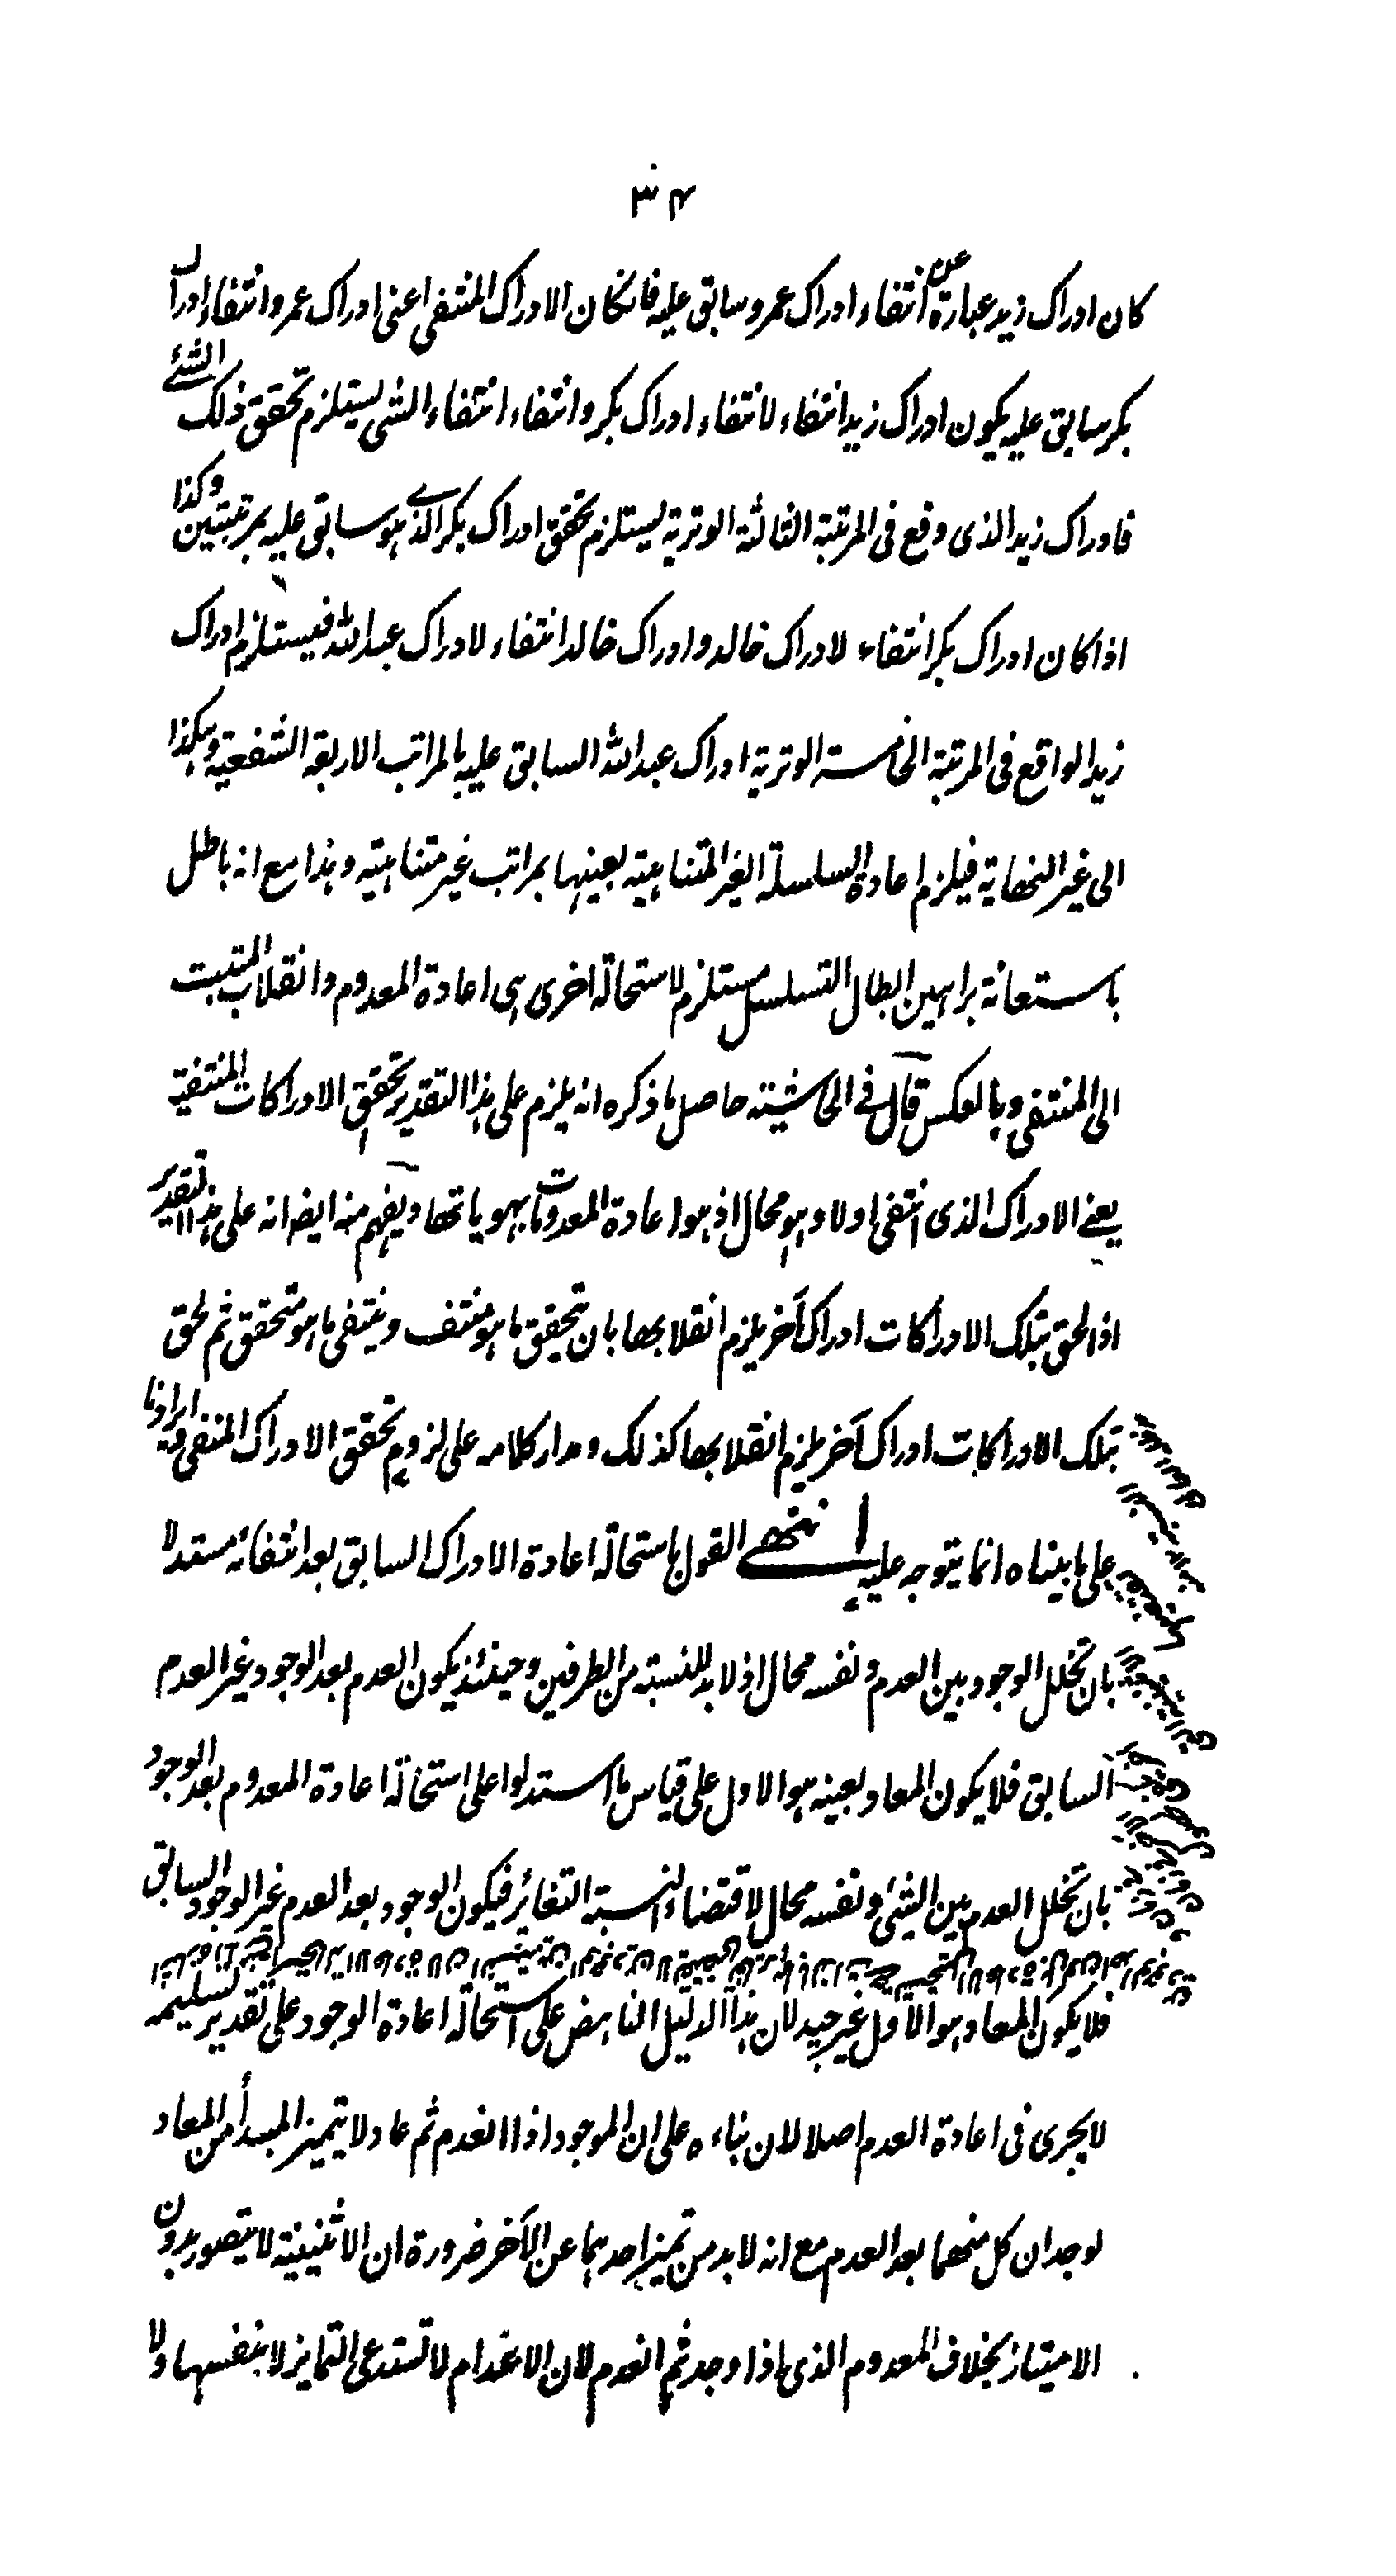 ٣٤
كان ادراك زيد عبارة عن انتفاء ادراك عمرو سابق عليه فانكان الادراك المنتفى اعنى ادراك عمرو انتفاء ادراك
بكر سابق عليه يكون ادراك زيد انتفاء لانتفاء ادراك بكر وانتفاء انتفاء الشى يستلزم تحقق ذلك الشئ
فادراك زيد الذى وقع فى المرتبة الثالثة الوترية يستلزم تحقق ادراك بكر الذے هو سابق عليه بمرتبتين وكذا
اذا كان ادراك بكر انتفاء لادراك خالد وادراك خالد انتفاء لادراك عبد الله فيستلزم ادراك
زيد الواقع فى المرتبة الخامسة الوترية ادراك عبد الله السابق عليه بالمراتب الاربعة الشفعية وهكذا
الى غير النهاية فيلزم اعادة السلسلة الغير المتناهية بعينها بمراتب غير متناهية وهذا مع انه باطل
باستعانة براهين ابطال التسلسل مستلزم لاستحالة اخرى هى اعادة المعدوم وانقلاب المثبت
الى المنتفى وبالعكس قال فے الحاشية حاصل ما ذكره انه يلزم على هذا التقدير تحقق الادراكات المنتفية
يعنے الادراك الذى انتفى اولا وهو محال اذ هو اعادة المعدومات بهوياتها ويفهم منه ايضا انه على هذا التقدير
اذا لحق بتلك الادراكات ادراك آخر يلزم انقلابها بان تحقيق ما هو منتف وينتفى ما هو متحقق ثم لحق
بتلك الادراكات ادراك آخر يلزم انقلابها كذلك ومدار كلامه على لزوم تحقق الادراك المنفى وايرادنا
على ما بيناه انما يتوجه عليه انتهے القول باستحالة اعادة الادراك السابق بعد انتفائه مستدلا
بان تخلل الوجود بين العدم ونفسه محال اذ لا بد للنسبة من الطرفين وحينئذ يكون العدم بعد الوجود غير العدم
السابق فلا يكون المعاد بعينه هو الاول على قياس ما استدلوا على استحالة اعادة المعدوم بعد الوجود
بان تخلل العدم بين الشئ ونفسه محال لاقتضاء النسبة التغائر فيكون الوجود بعد العدم غير الوجود السابق
فلا يكون المعاد هو الاول غير جيد لان هذا الدليل الناهض على استحالة اعادة الوجود على تقدير تسليمه
لا يجرى فى اعادة العدم اصلا لان بناءه على ان الموجود اذا انعدم ثم عاد لا يتميز المبدأ من المعاد
لوجدان كل منهما بعد العدم مع انه لا بد من تميز احدهما عن الآخر ضرورة ان الاثنينية لا يتصور بدون
الامتياز بخلاف المعدوم الذى اذا وجد ثم انعدم لان الاعدام لا تستدعى التمايز لا بنفسها ولا